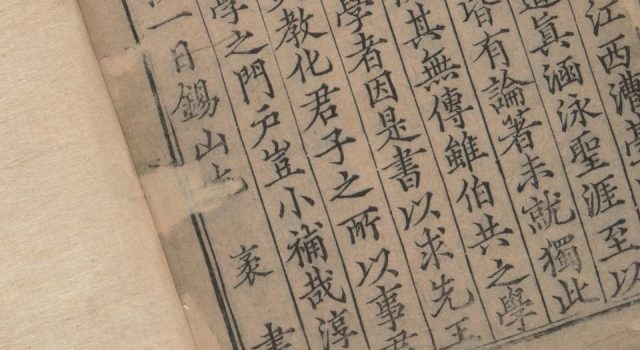 江西漕
道真涵泳聖涯至以
皆有論著未就獨此
其無傳雖伯共之學
學者因是書以求先王
教化君子之所以事君
學之門戶豈小補哉淳
一日錫山尤袤書